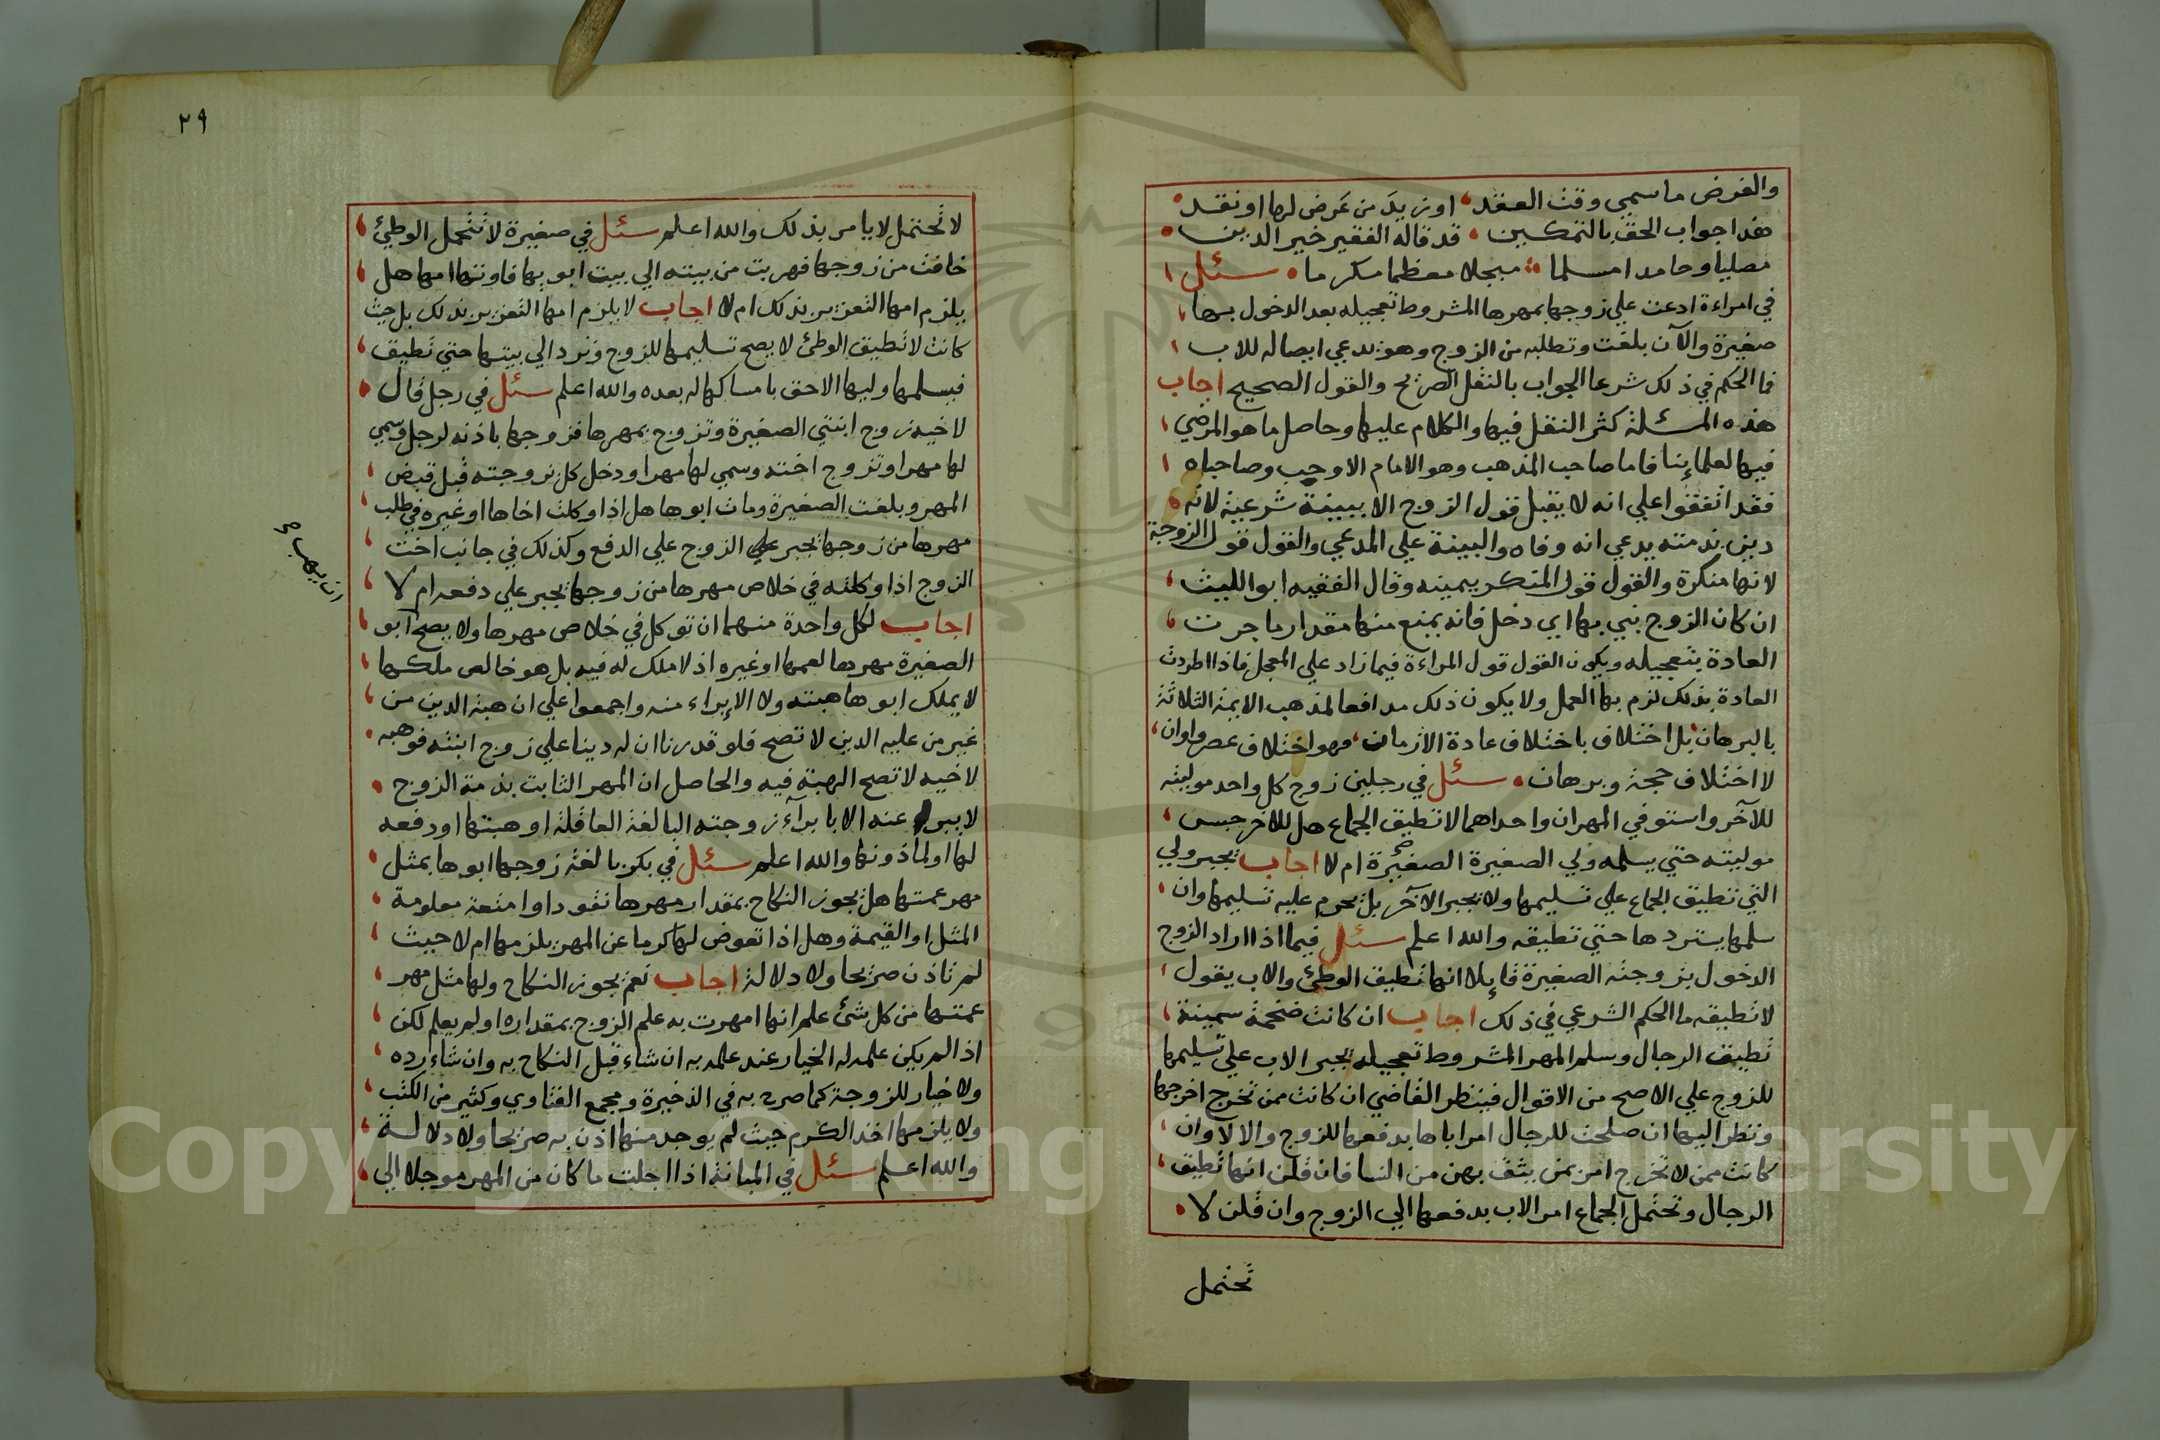 والفرض ما سمي وقت العقد، او نزيد من عرض لها او نقد
هذا جواب الحق بالتمكين . قد قاله الفقير خير الدين
مصليا وحامدا مسلما مبجلا معظما مكرما . سئل
في امراءة ادعت علي زوجها بمهرها المشروط تعجيله بعد الدخول بها
صغيرة والآن بلغت وتطلبه من الزوج وهو يدعي ايصاله للاب
فما الحكم في ذلك شرعا الجواب بالنقل الصريح والقول الصحيح اجاب
هذه المسئلة كثر النقل فيها والكلام عليها وحاصل ما هو المرضي
فيها لعلمائنا فاما صاحب المذهب وهو الامام الاوجب وصاحباه
فقد اتفقوا علي انه لا يقبل قول الزوج الا ببينة شرعية لانه
دين بذمته يدعي انه وفاه والبينة علي المدعي والقول قول الزوجة
لانها منكرة والقول قول المنكر بيمينه وقال الفقيه ابو الليث
ان كان الزوج بني بها اي دخل فانه يمنع منها مقدار ما جرت
العادة بتعجيله ويكون القول قول المراءة فيما زاد علي المعجل فاذا اطردت
العادة بذلك لزم بها العمل ولا يكون ذلك مدافعا لمذهب الايمة الثلاثة
بالبرهان بل اختلاف باختلاف عادة الازمان، فهو اختلاف عصر واوان،
لا اختلاف حجة وبرهان . سئل في رجلين زوج كل واحد موليته
للآخر واستوفي المهران واحداهما لا تطيق الجماع هل للاخر حبس
موليته حتي يسلمه ولي الصغيرة الصغيرة ام لا اجاب يجبر ولي
التي تطيق الجماع علي تسليمها ولا يجبر الآخر بل يحرم عليه تسليمها وان
سلمها يستردها حتي تطيقه والله اعلم سئل فيما اذا اراد الزوج
الدخول بزوجته الصغيرة قايلا انها تطيق الوطئ والاب يقول
لا تطيقه ما الحكم الشرعي في ذلك اجاب ان كانت ضخمة سمينة
تطيق الرجال وسلم المهر المشروط تعجيله يجبر الاب علي تسليمها
للزوج علي الاصح من الاقوال فينظر القاضي ان كانت ممن تخرج اخرجها
ونظر اليها ان صلحت للرجال امر اباها بدفعها للزوج والا لا وان
كانت ممن لا تخرج امر من يثق بهن من النسا فان قلن انها تطيق
الرجال وتحتمل الجماع امر الاب بدفعها الي الزوج وان قلن لا
تحتمل
٢٩
لا تحتمل لا يامر بذلك والله اعلم سئل في صغيرة لا تتحمل الوطئ
خافت من زوجها فهربت من بيته الي بيت ابويها فاوتها امها هل
يلزم امها التعزير بذلك ام لا اجاب لا يلزم امها التعزير بذلك بل حيث
كانت لا تطيق الوطئ لا يصح تسليمها للزوج وترد الي بيتها حتي تطيق
فيسلمها وليها الاحق بامساكها له بعده والله اعلم سئل في رجل قال
لاخيه زوج ابنتي الصغيرة وتزوج بمهرها فزوجها باذنه لرجل وسمي
لها مهرا وتزوج اخته وسمي لها مهرا ودخل كل بزوجته قبل قبض
المهر وبلغت الصغيرة ومات ابوها هل اذا وكلت اخاها او غيره في طلب
مهرها من زوجها يجبر علي الزوج علي الدفع وكذلك في جانب اخت
الزوج اذا وكلته في خلاص مهرها من زوجها يجبر علي دفعه ام لا
اجاب لكل واحدة منهما ان توكل في خلاص مهرها ولا يصح ابو
ان يهب صح
الصغيرة مهرها لعمها او غيره اذ لا ملك له فيه بل هو خالص ملكها
لا يملك ابوها هبته ولا الابراء منه واجمعوا علي ان هبة الدين من
غير من عليه الدين لا تصح فلو قدرنا ان له دينا علي زوج ابنته فوهبه
لاخيه لا تصح الهبة فيه والحاصل ان المهر الثابت بذمة الزوج
لا يبرا عنه الا بابرآء زوجته البالغة العاقلة او هبتها او دفعه
لها او لماذونها والله اعلم سئل في بكر بالغة زوجها ابوها بمثل
مهر عمتها هل يجوز النكاح بمقدار مهرها نقودا وامتعة معلومة
المثل او القيمة وهل اذا تعوض لها كرما عن المهر يلزمها ام لا حيث
لم تاذن صريحا ولا دلالة اجاب نعم يجوز النكاح ولها مثل مهر
عمتها من كل شئ علم انها امهرت به علم الزوج بمقداره اولم يعلم لكن
اذا لم يكن علمه له الخيار عند علمه به ان شاء قبل النكاح به وان شاء رده
ولا خيار للزوجة كما صرح به في الذخيرة ومجمع الفتاوي وكثير من الكتب
ولا يلزمها اخذ الكرم حيث لم يوجد منها اذن به صريحا ولا دلالة
والله اعلم سئل في المبانة اذا اجلت ما كان من المهر موجلا الي
Copyright © King Saud University
1957